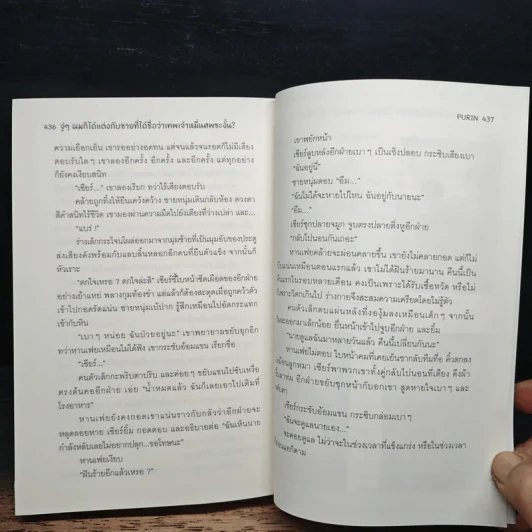 436 จู่ๆ ผมก็ได้แต่งกับชายที่ได้ชื่อว่าเทพเจ้าหมื่นสพซะงั้น?
ความเยือกเย็น เขารออย่างอดทน แต่จนแล้วจนรอดก็ไม่มีเสียง
ตอบรับใดๆ เขาลองอีกครั้ง อีกครั้ง และอีกครั้ง แต่ทุกอย่าง
ก็ยังคงเงียบสนิท
"เซียร์..." เขาลองเรียก ทว่าไร้เสียงตอบรับ
คล้ายถูกทิ้งให้ยืนเคว้งคว้าง ชายหนุ่มเดินกลับห้อง ดวงตา
สีดำสนิทไร้ชีวิต เขามองผ่านความมืดไปยังเตียงที่ว่างเปล่า และ...
"แบร่ !"
ร่างเล็กกระโจนโผล่ออกมาจากมุมซ้ายที่เป็นมุมอับของประตู
ส่งเสียงดังพร้อมกับแลบลิ้นหลอกอีกคนที่ยืนตัวแข็ง จากนั้นก็
หัวเราะ
"ตกใจเหรอ ? ตกใจล่ะสิ" เซียร์ชี้ใบหน้าซีดเผือดของอีกฝ่าย
อย่างเย้าแหย่ พลางกุมท้องขำ แต่แล้วก็ต้องสะดุดเมื่อถูกคว้าตัว
เข้าไปกอดรัดแน่น ชายหนุ่มเบ้ปาก รู้สึกเหมือนไปอัดกระแทก
เข้ากับหิน
"เบาๆ หน่อย ฉันป่วยอยู่นะ" เขาพยายามขยับขยุกขยิก
ทว่าหานเฟยเหมือนไม่ได้ฟัง เขากระชับอ้อมแขน เรียกชื่อ
"เซียร์..."
คนตัวเล็กกะพริบตาปริบ และค่อยๆ ขยับแขนไปขยับเหรือ
ตรงต้นคออีกฝ่าย เอ่ย "น้ำหมดแล้ว ฉันก็เลยเอาไปเติมที่
โรงอาหาร"
หานเฟยยังคงกอดเขาแน่นราวกับกลัวว่าอีกฝ่ายจะ
หลุดลอยหาย เซียร์ยิ้ม กอดตอบ และอธิบายต่อ "ฉันเห็นนาย
กำลังหลับเลยไม่อยากปลุก...ขอโทษนะ"
หานเฟยเงียบ
"ฝันร้ายอีกแล้วเหรอ ?"
PURIN 437
เขาพยักหน้า
เซียร์ลูบหลังอีกฝ่ายเบาๆ เป็นเชิงปลอบ กระซิบเสียงเบา
"ฉันอยู่นี่"
ชายหนุ่มตอบ "อืม..."
"ฉันไม่ได้จะหายไปไหน ฉันอยู่กับนายนะ"
"อืม..."
เซียร์ซุกปลายจมูก จูบตรงปลายติ่งหูอีกฝ่าย
"กลับไปนอนกันเถอะ"
หานเฟยคล้ายจะผ่อนคลายขึ้น เขายังไม่คลายกอด แต่ก็ไม่
แน่นเหมือนตอนแรกแล้ว เขาไม่ได้ฝันร้ายมานาน คืนนี้เป็น
แรกในรอบหลายเดือน คงเป็นเพราะได้รับเชื้อหวัด หรือไม่
วิตกกังวลเกินไป ร่างกายจึงสะสมความเครียดโดยไม่รู้ตัว
คนตัวเล็กตบแผ่นหลังที่งองุ้มลงเหมือนเด็กๆ จากนั้น
ละออกมาเล็กน้อย ยื่นหน้าเข้าไปจูบอีกฝ่าย และยิ้ม
"นายดูแลฉันมาหลายวันแล้ว คืนนี้เปลี่ยนกันนะ"
หานเฟยไม่ตอบ ใบหน้าคมที่เคยเย็นชากลับทึมทื่อ คิ้วตกลง
เหมือนลูกหมา เซียร์พาพวกเขาทั้งคู่กลับไปนอนที่เตียง ดึงผ้า
ขึ้นมาห่ม อีกฝ่ายขยับซุกหน้ากับอกเขา สูดหายใจเบาๆ และ
เซียร์กระชับอ้อมแขน กระซิบกล่อมเบาๆ
"ฉันจะดูแลนายเอง..."
จะคอยดูแล ไม่ว่าจะในช่วงเวลาที่แข็งแกร่ง หรือในช่วงเวลา
แอก็ตาม